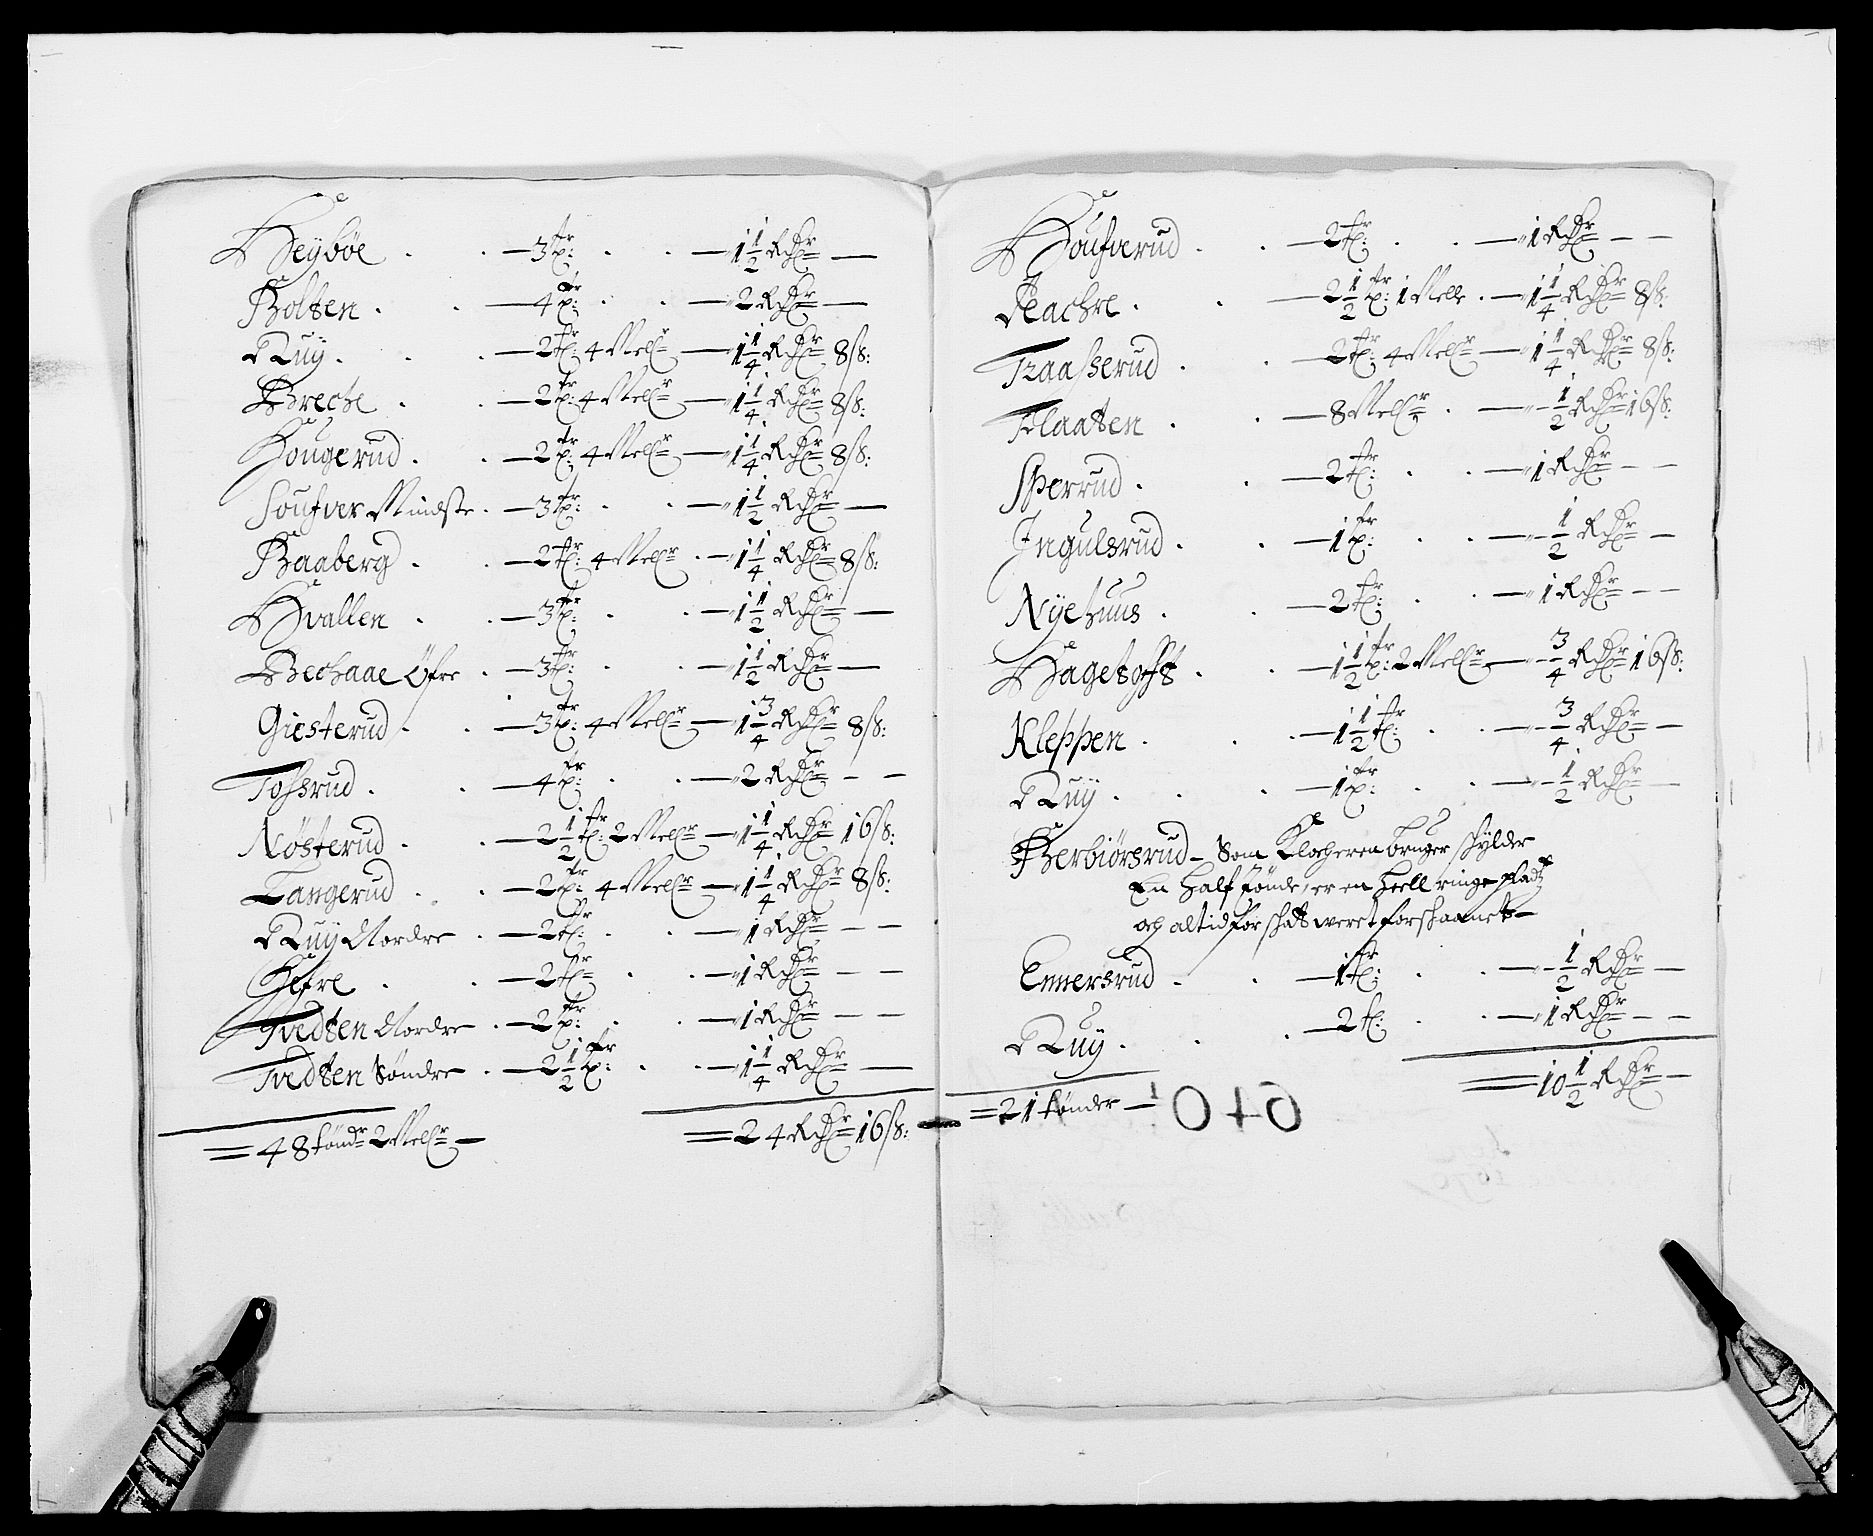 Heyböe . . — 3 tr: . . — 1 1/2 Rdr —
Holten . . — 4 tr: . . — 2 Rdr —
Ruÿ . . . — 2 tr: 4 Melr — 1 1/4 Rdr 8 ß:
Breche . . — 2 tr: 4 Melr — 1 1/4 Rdr 8 ß:
Hougerud . . — 2 tr: 4 Melr — 1 1/4 Rdr 8 ß:
Soufver Mindste . — 3 tr: . . — 1 1/2 Rdr —
Baaberg . . — 2 tr: 4 Melr . — 1 1/4 Rdr 8 ß:
Hvallen . . — 3 tr: . . — 1 1/2 Rdr —
Bechaae Öfre . — 3 tr: . . — 1 1/2 Rdr —
Giesterud . . — 3 tr: 4 Melr — 1 3/4 Rdr 8 ß:
Tossrud . . — 4 tr: . . — 2 Rdr — —
Nösterud . . — 2 1/2 tr: 2 Melr — 1 1/4 Rdr 16 ß:
Tangerud . . — 2 tr: 4 Melr — 1 1/4 Rdr 8 ß:
Ruÿ Nordre . — 2 tr: . . — 1 Rdr — —
. . — 2 tr: . . — 1 Rdr — —
Tvedten Nordre . — 2 tr: . . — 1 Rdr — —
Tvedten Söndre . — 2 1/2 tr: . . — 1 1/4 Rdr —
= 48 töndr 2 Melr — = 24 Rdr 16 ß:
Houfverud . . — 2 tr: . . — 1 Rdr — —
. . — 2 1/2 tr: 1 Melle . — 1 1/4 Rdr 8 ß:
Traasserud . . — 2 tr: 4 Melr — 1 1/4 Rdr 8 ß:
Flaaten . . — 8 Melr . — 1/2 Rdr 16 ß:
Sperrud . . — 2 tr: . . — 1 Rdr — —
Ingulsrud . . — 1 tr: . . — 1/2 Rdr —
Nÿehuus . . — 2 tr: . . — 1 Rdr — —
Hagetofft . . — 1 1/2 tr: 2 Melr — 3/4 Rdr 16 ß:
Kleppen . . — 1 1/2 tr: . . — 3/4 Rdr —
Ruÿ . . . — 1 tr: . . — 1/2 Rdr —
Herbiörsrud — Som Klocheren bruger schylder
En half tönde, er en heell ringe pladtz
och altid for schatt weret forschaanet —
Ennersrud . . — 1 tr: . . — 1/2 Rdr —
Ruy . . . — 2 t: . . — 1 Rdr — —
= 21 tönder — = 10 1/2 Rdr —